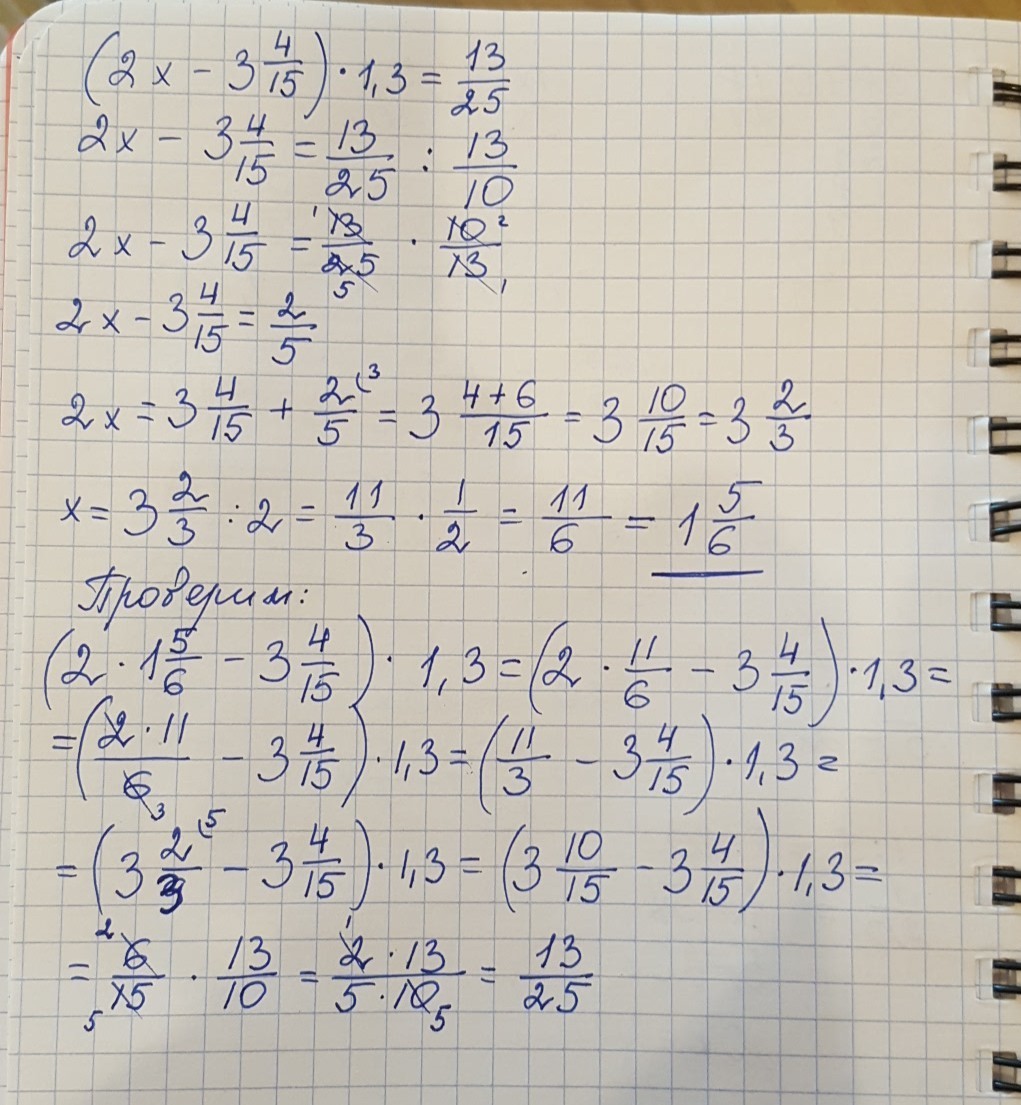 (2x - 3 4/15) · 1,3 = 13/25
2x - 3 4/15 = 13/25 : 13/10
2x - 3 4/15 = 13/25 · 10/13
2x - 3 4/15 = 2/5
2x = 3 4/15 + 2/5 = 3 (4+6)/15 = 3 10/15 = 3 2/3
x = 3 2/3 : 2 = 11/3 · 1/2 = 11/6 = 1 5/6
Проверим:
(2 · 1 5/6 - 3 4/15) · 1,3 = (2 · 11/6 - 3 4/15) · 1,3 =
= ((2 · 11)/6 - 3 4/15) · 1,3 = (11/3 - 3 4/15) · 1,3 =
= (3 2/3 - 3 4/15) · 1,3 = (3 10/15 - 3 4/15) · 1,3 =
= 6/15 · 13/10 = (2 · 13)/(5 · 10) = 13/25